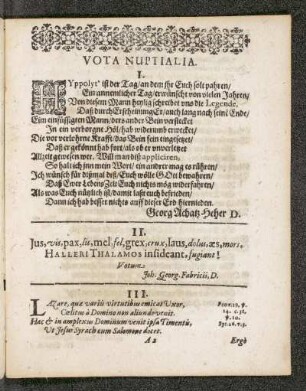 VOTA NUPTIALIA.
I.
HYppolyt' ist der Tag/ an dem Ihr Euch solt pahren/
Ein annemlicher Tag/ erwünscht von vielen Jahren/
Von diesem Mann heylig schreibet uns die Legende,
Daß durch Erscheinung Er/ auch lang nach seim Ende/
Ein einfüssigen Mann, ders ander Bein versteckt
In ein verborgne Höl/ hab widerumb erwecket/
Die vor verlohrne Krafft/ das Bein fein eingesetzet/
Daß er gekönnt hab fort/ als ob er unverletzet
Allzeit gewesen wer. Will man diß appliciren,
So halt ich inn mein Wort/ ein andrer mag es rühren/
Ich wünsch für dißmal diß/ Euch wölle GOtt bewahren/
Daß Ewer Lebens Zeit Euch nichts mög widerfahren/
Als was Euch nützlich ist/ damit laßt euch befrieden/
Dann ich hab besser nichts auff dieser Erd hiernieden.
Georg Achatz Heher D.
II.
Jus, vis, pax, lis, mel, fel, grex, crux, laus, dolus, æs, mors,
HALLERI THALAMOS insideant, fugiant!
Votum
Joh. Georg. Fabricii, D.
III.
LÆtare, quæ variis virtutibus emicat Uxor,
Cœlitus à Domino non aliunde venit.
Hac & in amplexus Dominum venit ipsa Timentū,
Ut Jesus Syrach cum Salomone docet.
A 2
Ergò